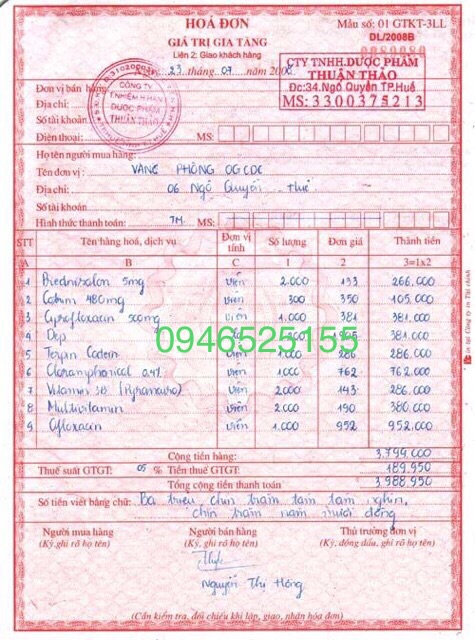 HOÁ ĐƠN
GIÁ TRỊ GIA TĂNG
Liên 2: Giao khách hàng
Mẫu số: 01 GTKT-3LL
DL/2008B
0080080
Ngày 23 tháng 07 năm 2008
CÔNG TY
T.NHIỆM H.HẠN
DƯỢC PHẨM
THUẬN THẢO
CTY TNHH.DƯỢC PHẨM
THUẬN THẢO
Đc:34.Ngô Quyền TP.Huế
MS:3300375213
Đơn vị bán hàng
Địa chỉ:
Số tài khoản
Điện thoại: MS:
Họ tên người mua hàng:
Tên đơn vị: VĂNG PHÒNG OGCDC
Địa chỉ: 06 Ngô Quyền Huế
Số tài khoản
Hình thức thanh toán: TM. MS:
STT Tên hàng hoá, dịch vụ Đơn vị tính Số lượng Đơn giá Thành tiền
A B C 1 2 3=1x2
1 Prednisolon 5mg viên 2.000 133 266.000
2 480mg viên 300 350 105.000
3 500mg viên 1.000 381 381.000
4 Dep 381.000
5 Terpin Codein viên 286 286.000
6 Cloramphenical 0.4% viên 1.000 762 762.000
7 Vitamin 3B viên 2000 143 286.000
8 Multivitamin viên 2.000 190 380.000
9 Ofloxacin viên 1.000 952 952.000
0946525155
Cộng tiền hàng: 3.799.000
Thuế suất GTGT: 05 % Tiền thuế GTGT: 189.950
Tổng cộng tiền thanh toán 3.988.950
Số tiền viết bằng chữ: Ba triệu, chín trăm tám tám nghìn,
chín trăm năm mươi đồng
Người mua hàng Người bán hàng Thủ trưởng đơn vị
(Ký, ghi rõ họ tên) (Ký, ghi rõ họ tên) (Ký, đóng dấu, ghi rõ họ tên)
Nguyễn Thị Hồng
(Cần kiểm tra, đối chiếu khi lập, giao, nhận hóa đơn)